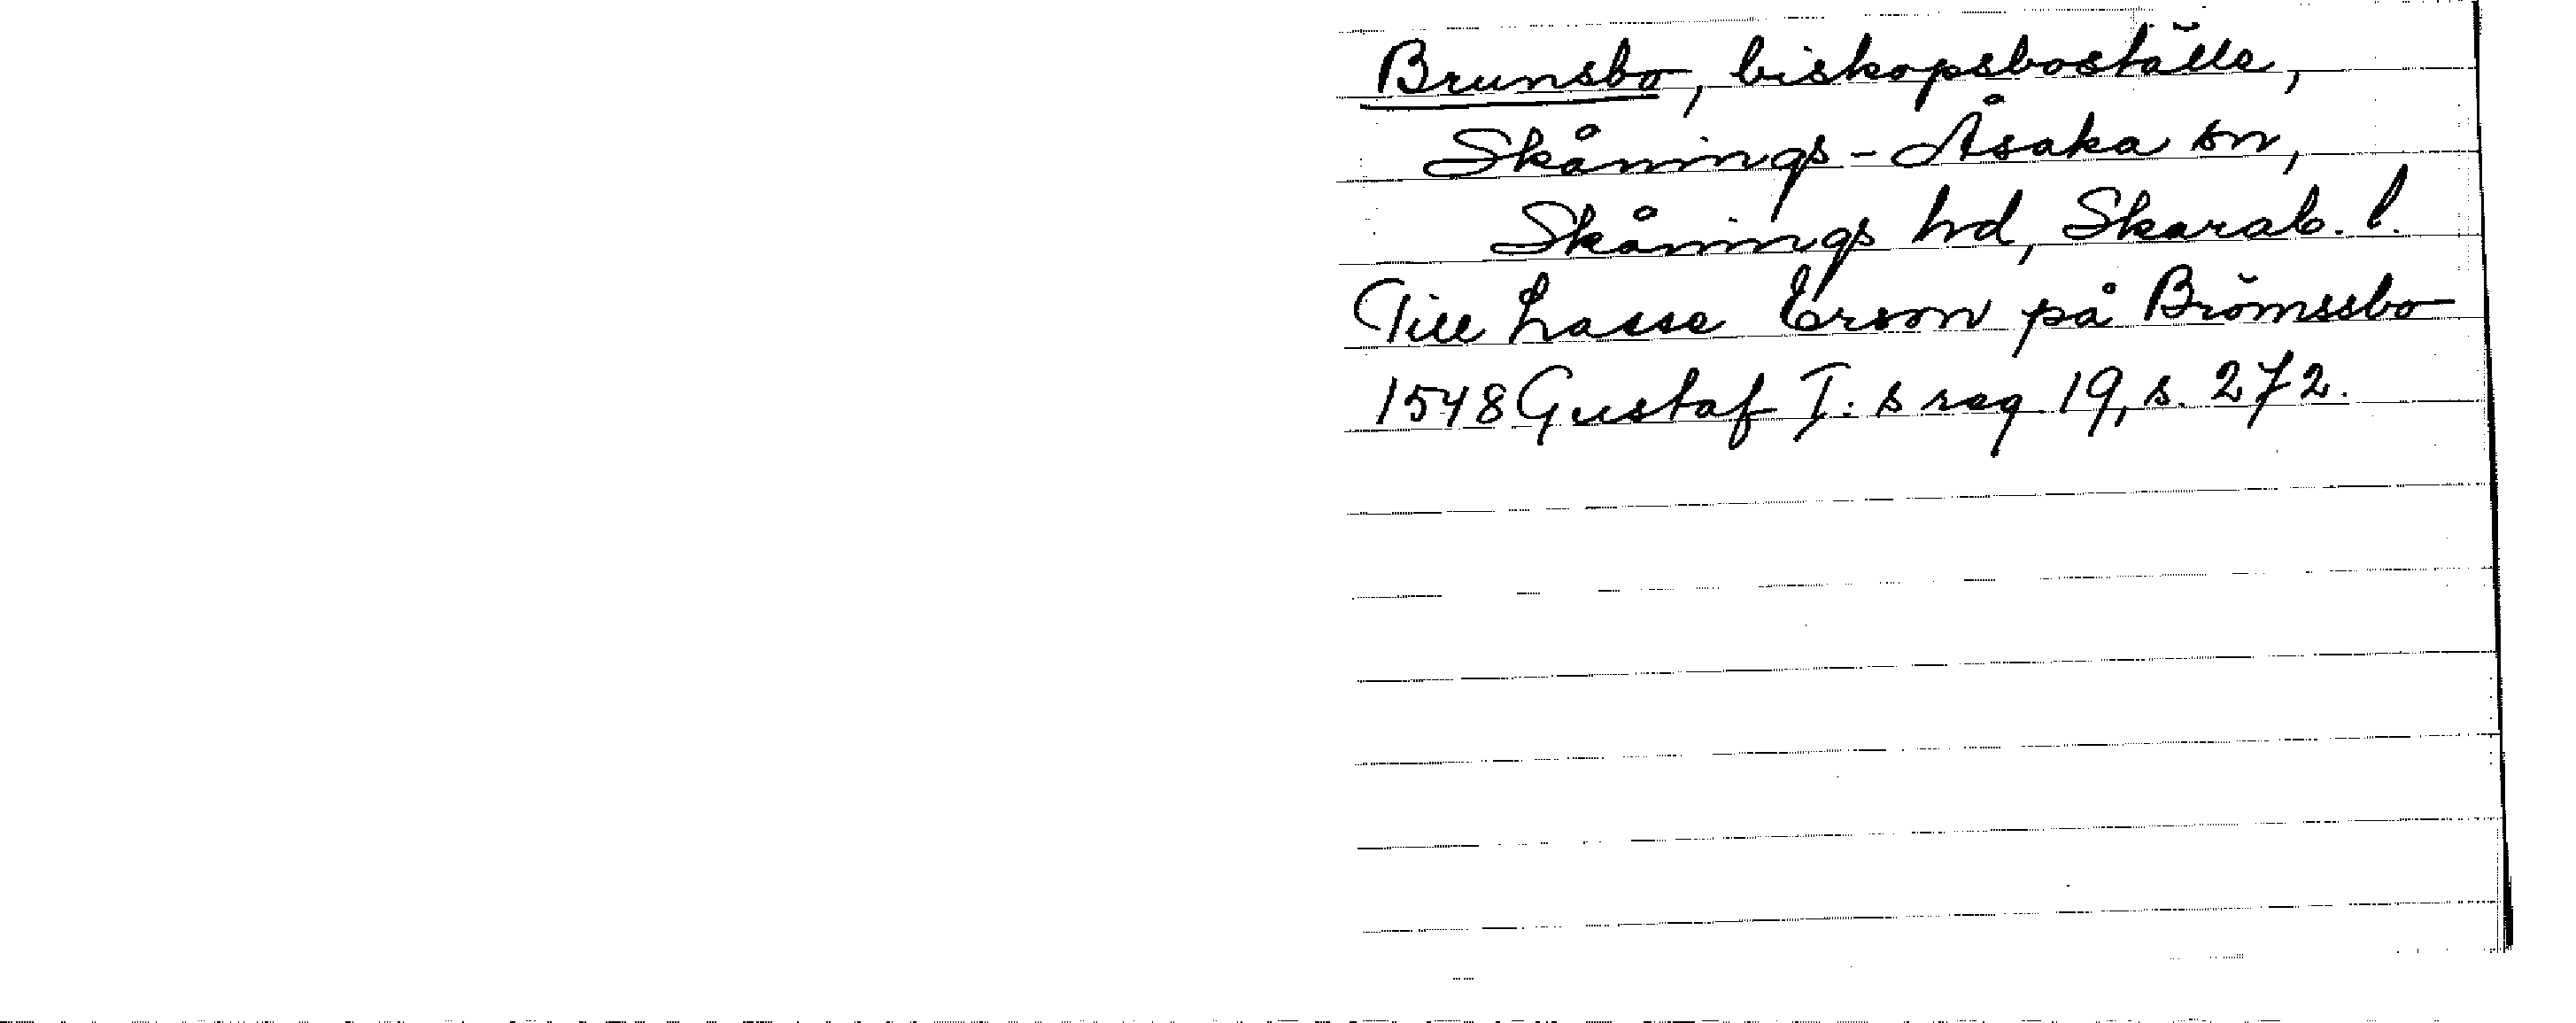 Brunsbo, biskopsboställe,
Skånings-Åsaka sn,
Skånings hd, Skarab. l.
Till Lasse Erson på Brömssbo
1548 Gustaf I:s reg 19, s. 272.